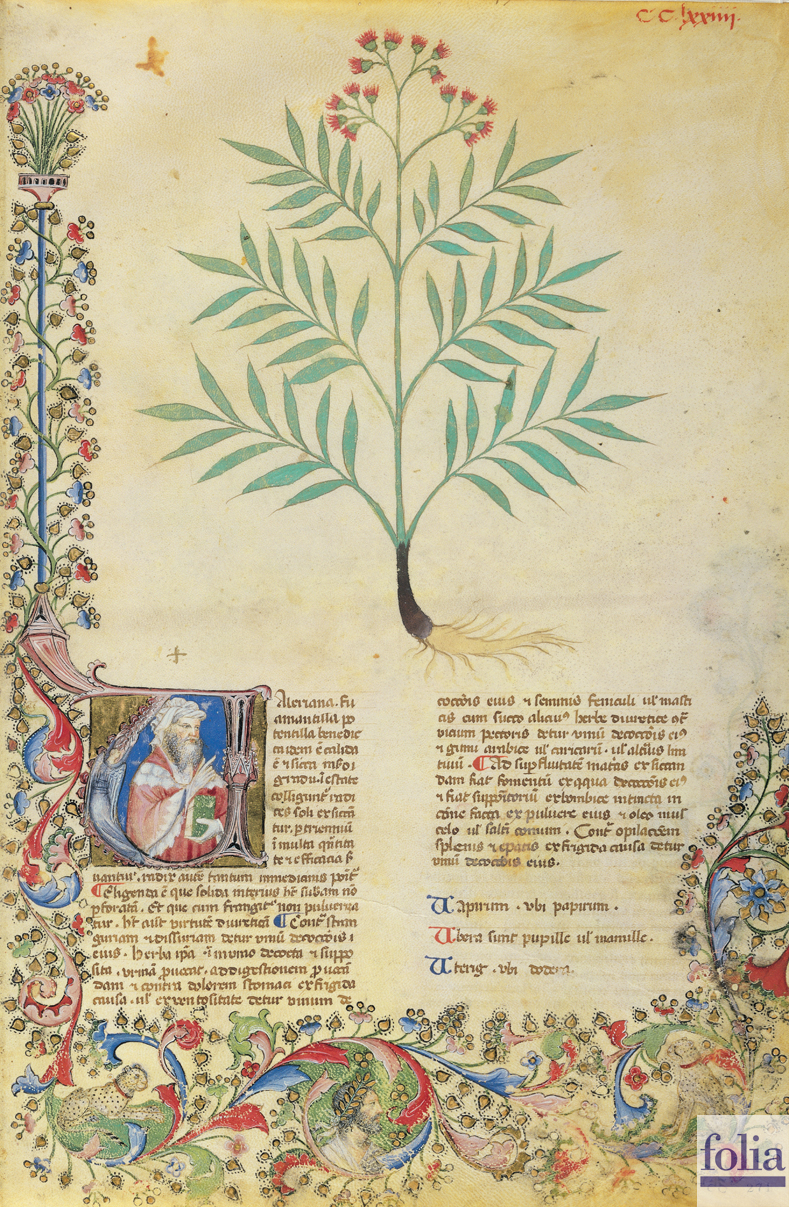 CC lxxiiii.
Valeriana. Fu
amantilla po
tentilla benedic
ta idem ē calida
⁊ sicca in
gradu. ī estate
colligunt radi
ces soli exsicca
tur. p trienniū
ī multa
te ⁊ efficacia
uantur. radix autē tantum
Eligenda ē que solida interius hꝫ nō
pforatā. Et que cum frangit non pulueriza
tur. hꝫ aūt virtutē diureticā Contᵃ stran
guriam ⁊ dissuriam detur vinū decoctōis
eius. herba ipᵃ ī uino decocta ⁊ suppo
sita. urinā puocat. ad digestionem puocan
dam ⁊ contra dolorem stomaci ex frigida
causa. ul ex uentositate detur vinum de
coctōis eius ⁊ seminis feniculi ul masti
cis cum succo alicuiꝰ herbe diuretice
uicium pectoris detur vinū decoctōis eiꝰ
⁊ gumi arabice ul
tiuū. Ad supfluitatē matᵃcis exsiccan
dam fiat fomentū ex aqua decoctōis eiꝰ
⁊ fiat suppōitoriū ex bombice intincta in
cōne facta ex puluere eius ⁊ oleo mus
celo ul saltī comum. Contᵃ opilacōem
splenis ⁊ epatis ex frigida causa detur
vinū decoctōis eius.
Vapirum. vbi papirum.
Vbera sunt pupille ul mamille.
Vterig. vbi dodera.
folia